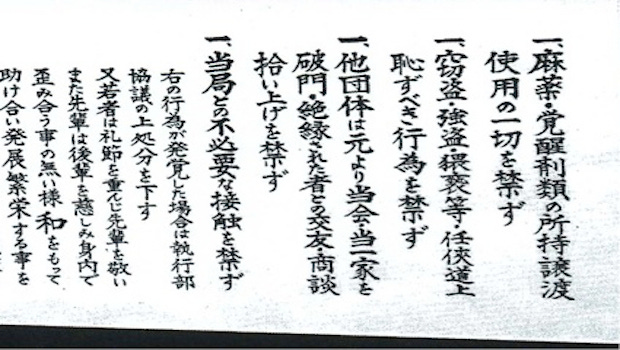 一、麻薬・覚醒剤類の所持譲渡
使用の一切を禁ず
一、窃盗・強盗・猥褻等・任侠道上
恥ずべき行為を禁ず
一、他団体は元より当会・当一家を
破門・絶縁された者との交友・商談
拾い上げを禁ず
一、当局との不必要な接触を禁ず
右の行為が発覚した場合は執行部
協議の上処分を下す
又若者は礼節を重んじ先輩を敬い
また先輩は後輩を慈しみ身内で
歪み合う事の無い様和をもって
助け合い発展、繁栄する事を